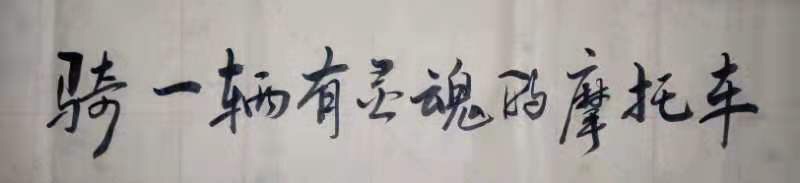 骑一辆有灵魂的摩托车